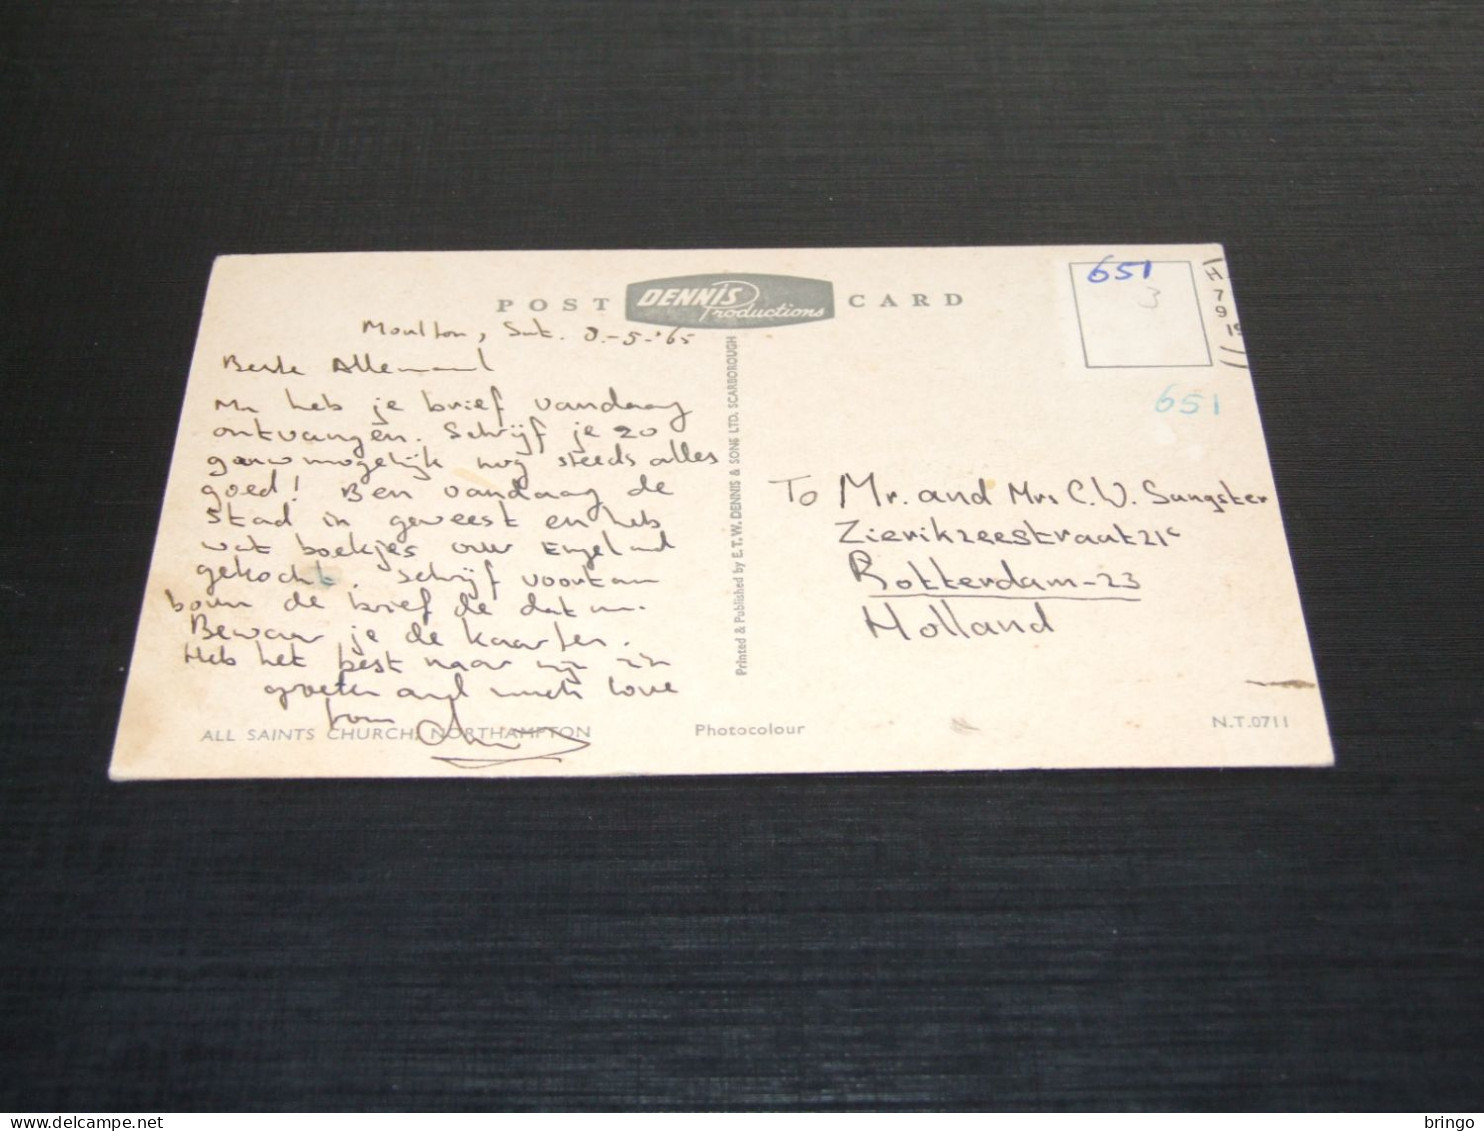 POST DENNIS Productions CARD
Moulton, 8-5-'65
Beste Allemaal
heb je brief vandaag
ontvangen. Schrijf je zo
gauw mogelijk nog steeds alles
goed! Ben vandaag de
stad in geweest en heb
wat boekjes over Engeland
gekocht. Schrijf voortaan
boven de brief de datum.
Bewaar je de kaarten.
Heb het best naar mijn zin
groeten and much love
from
ALL SAINTS CHURCH, NORTHAMPTON
Photocolour
N.T.0711
Printed & Published by E.T.W. DENNIS & SONS LTD. SCARBOROUGH
651
651
To Mr. and Mrs C.W. Sangster
Zierikzeestraat 21c
Rotterdam-23
Holland
bringo